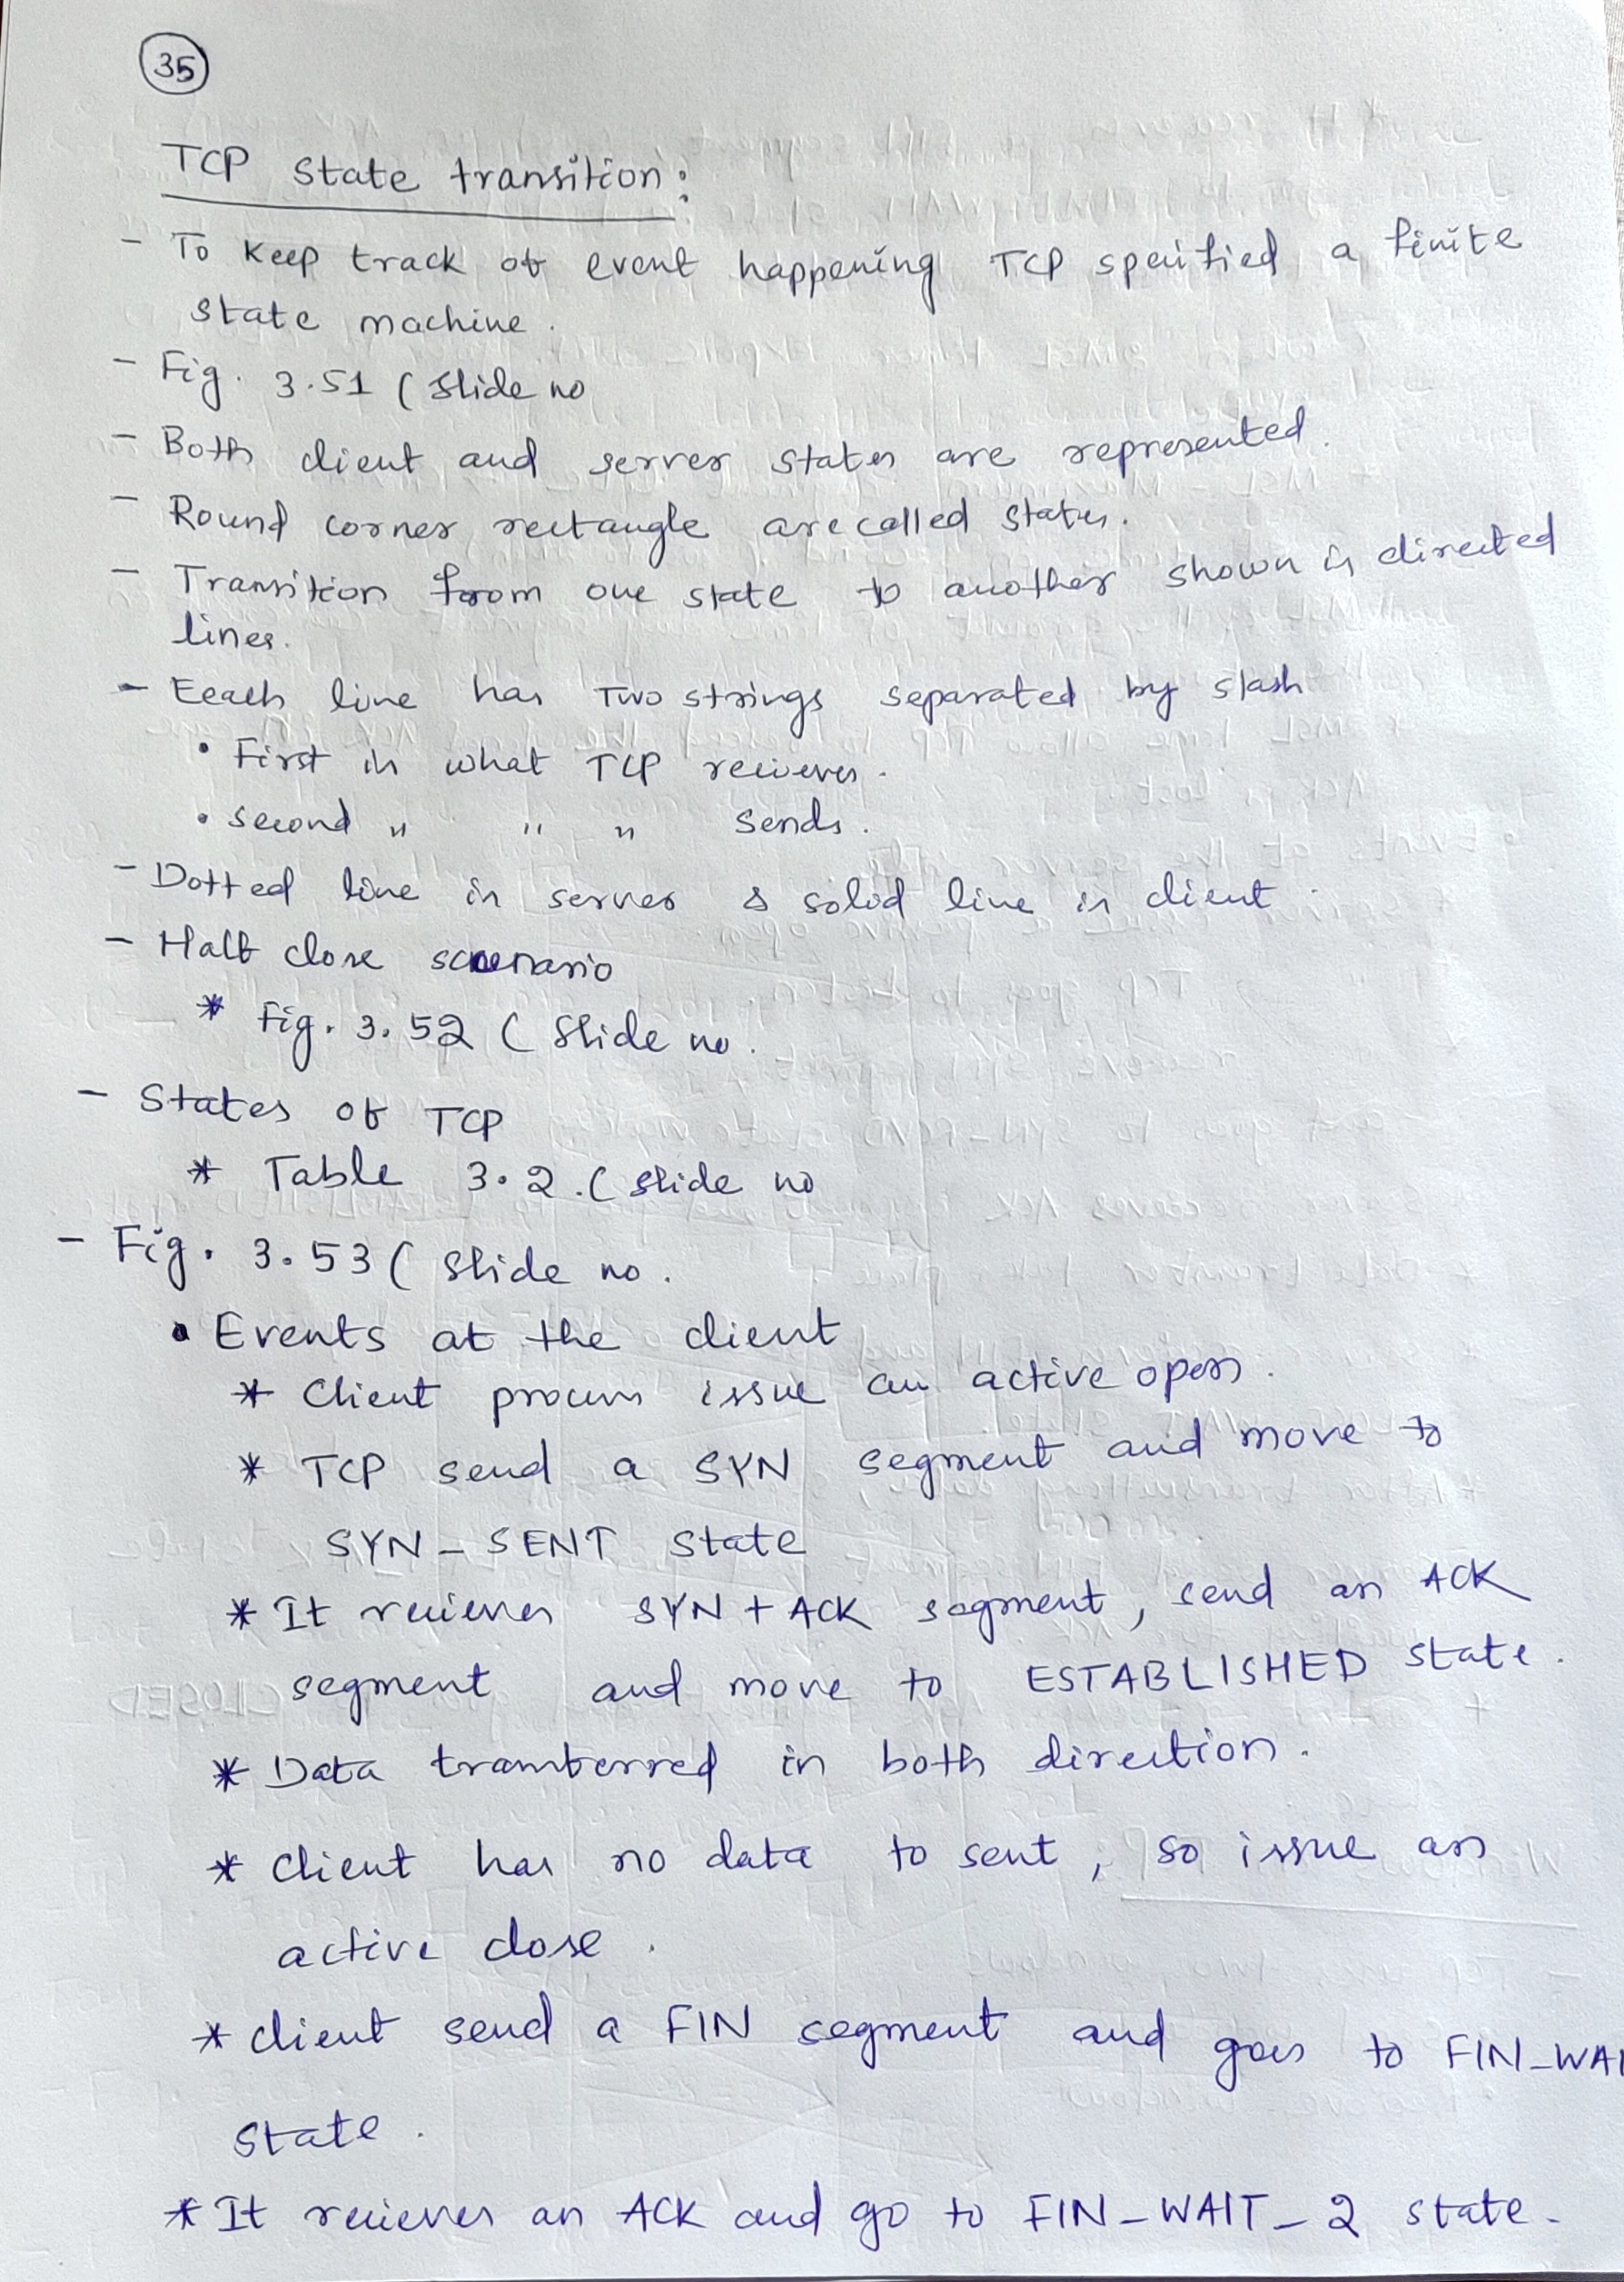 35
TCP state transition:
- To keep track of event happening TCP specified a finite
state machine.
- Fig. 3.51 ( slide no
- Both client and server states are represented.
- Round corner rectangle are called states.
- Transition from one state to another shown is directed
lines.
- Eeach line has Two strings separated by slash
• First is what TCP recieves.
• second " " " sends.
- Dotted line is server & solid line is client.
- Half close scenario
* Fig. 3.52 ( Slide no.
- States of TCP
* Table 3.2. ( slide no
- Fig. 3.53 ( Slide no.
• Events at the client
* Client process issue an active open.
* TCP send a SYN segment and move to
SYN-SENT state
* It recieves SYN + ACK segment, send an ACK
segment and move to ESTABLISHED state.
* Data transferred in both direction.
* Client has no data to sent, so issue an
active close.
* Client send a FIN segment and goes to FIN-WAI
state.
* It recieves an ACK and go to FIN-WAIT-2 state.